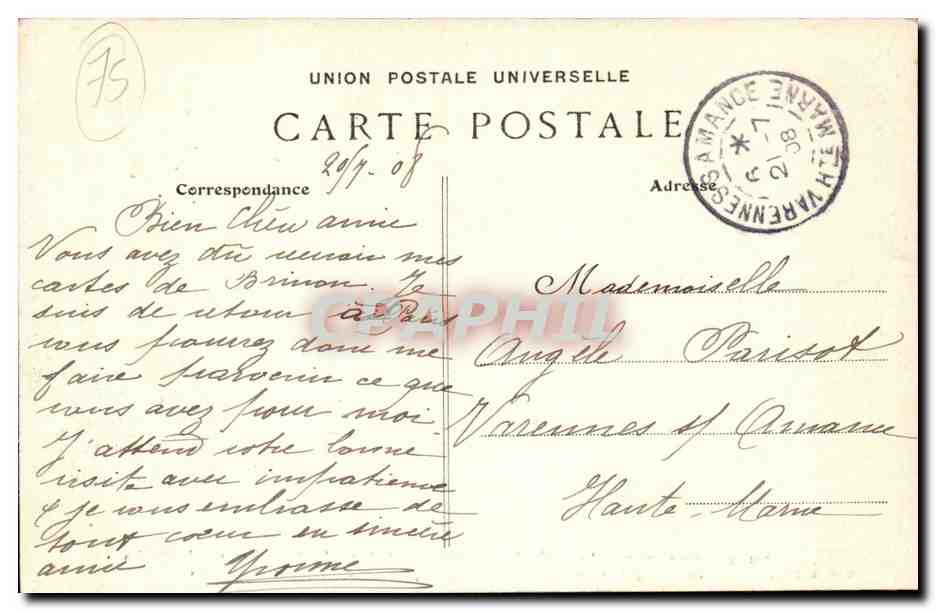 75
UNION POSTALE UNIVERSELLE
CARTE POSTALE
20/7-08
Correspondance
Adresse
VARENNES S AMANCE
6 *
21 -7
08
HTE MARNE
Bien chère amie
Vous avez dû recevoir mes
cartes de Brinon. Je
suis de retour à Paris
vous pourrez donc me
faire parvenir ce que
vous avez pour moi
J'attend votre bonne
visite avec impatience
& je vous embrasse de
tout coeur en sincère
amie Yvonne
Mademoiselle
Angèle Parisot
Varennes s/ Amance
Haute-Marne
CPAPHIL